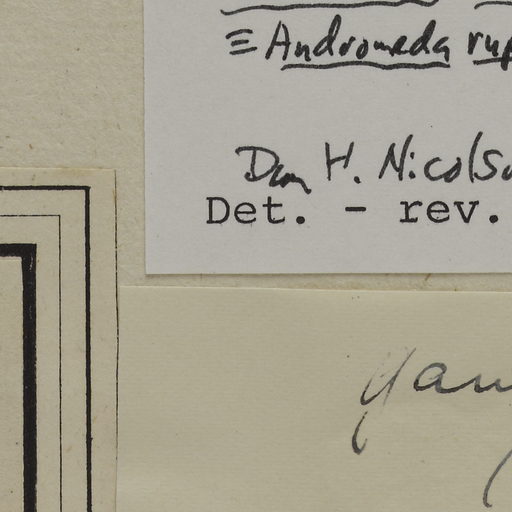 ≡ Andromeda rup
Dan H. Nicols
Det. - rev.